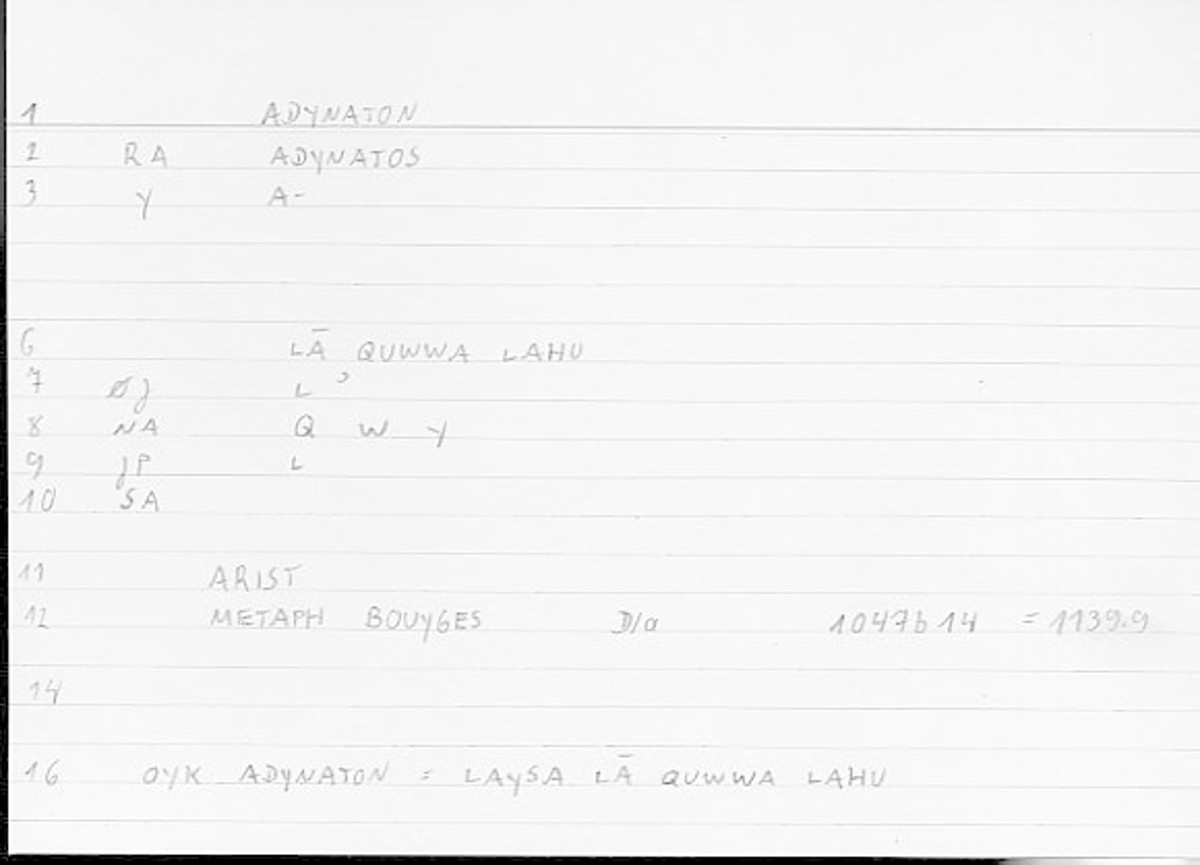 1 ADYNATON
2 RA ADYNATOS
3 Y A-
6 LĀ QUWWA LAHU
7 ØJ L ʾ
8 NA Q W Y
9 JP L
10 SA
11 ARIST
12 METAPH BOUYGES D/a 1047b14 = 1139.9
14
16 OYK ADYNATON = LAYSA LĀ QUWWA LAHU